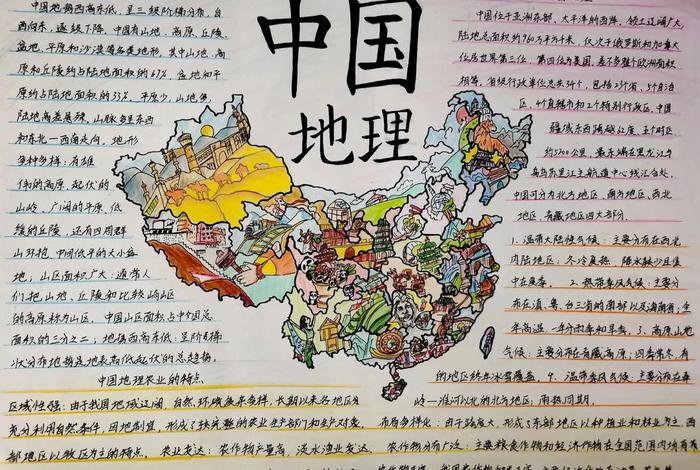 中国
地理
中国地貌西高东低，呈三级阶梯分布，自
西向东，逐级下降，中国有山地、高原、丘陵、
盆地、平原和沙漠等各类地形，其中山地、高
原和丘陵约占陆地面积的67%，盆地和平
原约占陆地面积的33%。平原少，山地多，
陆地高差悬殊，山脉多呈东西
和东北一西南走向，地形
多种多样：有雄
伟的高原、起伏的
山岭、广阔的平原、低
缓的丘陵，还有四周群
山环抱、中间低平的大小盆
地；山区面积广大：通常人
们把山地、丘陵和比较崎岖
的高原称为山区，中国山区面积占中国总
面积的三分之二；地势西高东低：呈阶梯
状分布地势是地表高低起伏的总趋势。
中国位于亚洲东部、太平洋的西岸，领土辽阔广大，
陆地总面积约960万平方千米，仅次于俄罗斯和加拿大
位居世界第三位，第四位为美国，差不多整个欧洲面积
相等，省级行政单位总共34个，包括23个省、5个自治
区、4个直辖市和2个特别行政区，中国
疆域东西跨越62度、5个时区，
约5200公里，最东端在黑龙江与
乌苏里江主航道中心线汇合处，
中国可分为北方地区、南方地区、西北
地区、青藏地区四大部分，
1、温带大陆性气候：主要分布在西北
内陆地区：冬冷夏热、降水稀少且集
中在夏季，2、热带季风气候：主要分
布在滇、粤、台三省的南部以及海南省，全
年高温、一年分雨季和旱季，3、高原山地
气候：主要分布在青藏高原；四季常冬，有
的地区终年冰雪覆盖，4、温带季风气候：主要分布在秦
岭一淮河以北的北方地区；雨热同期，
中国地理农业的特点
区域性强：由于我国地域辽阔、自然环境复杂多样，长期以来各地区分
充分利用自然条件，因地制宜，形成了块完整的农业生产部门和生产对象，
布局多样化：由于跨度大，形成了东部地区以种植业和林业为主，西
部地区以牧区为主的特点，农业发达：农作物产量高、淡水渔业发达，农作物分布广泛：主要粮食作物和经济作物在全国范围内均有